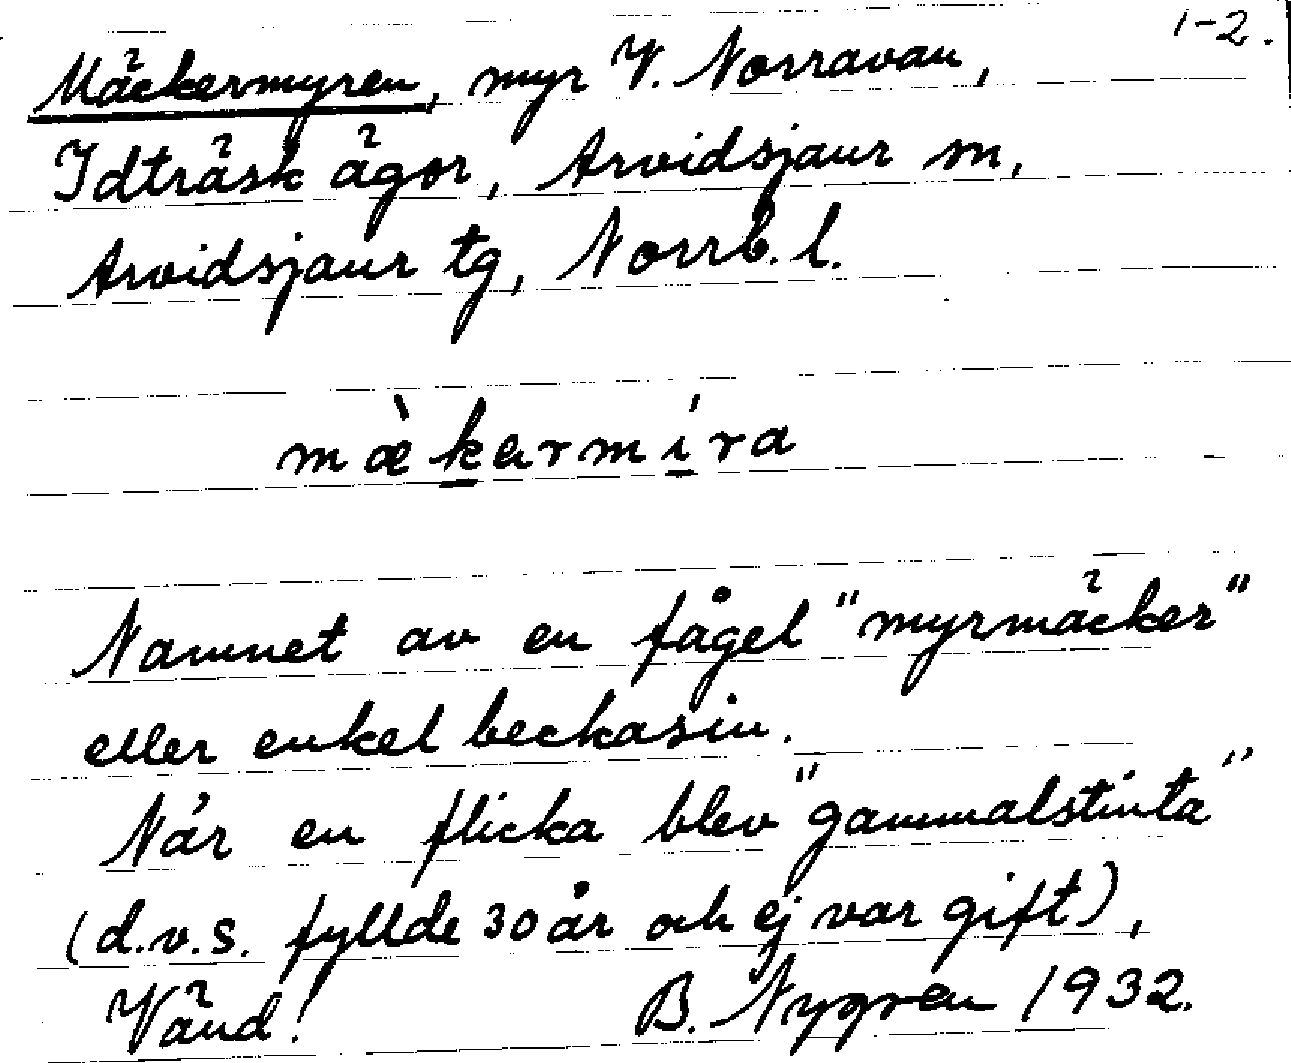 1-2.
Mäckermyren, myr V. Norravan,
Idträsk ägor, Arvidsjaur sn,
Arvidsjaur tg, Norrb. l.
mæ̀kermíra
Namnet av en fågel "myrmäcker"
eller enkel beckasin.
När en flicka blev "gammalstinta"
(d.v.s. fyllde 30 år och ej var gift),
Vänd! B. Nygren 1932.